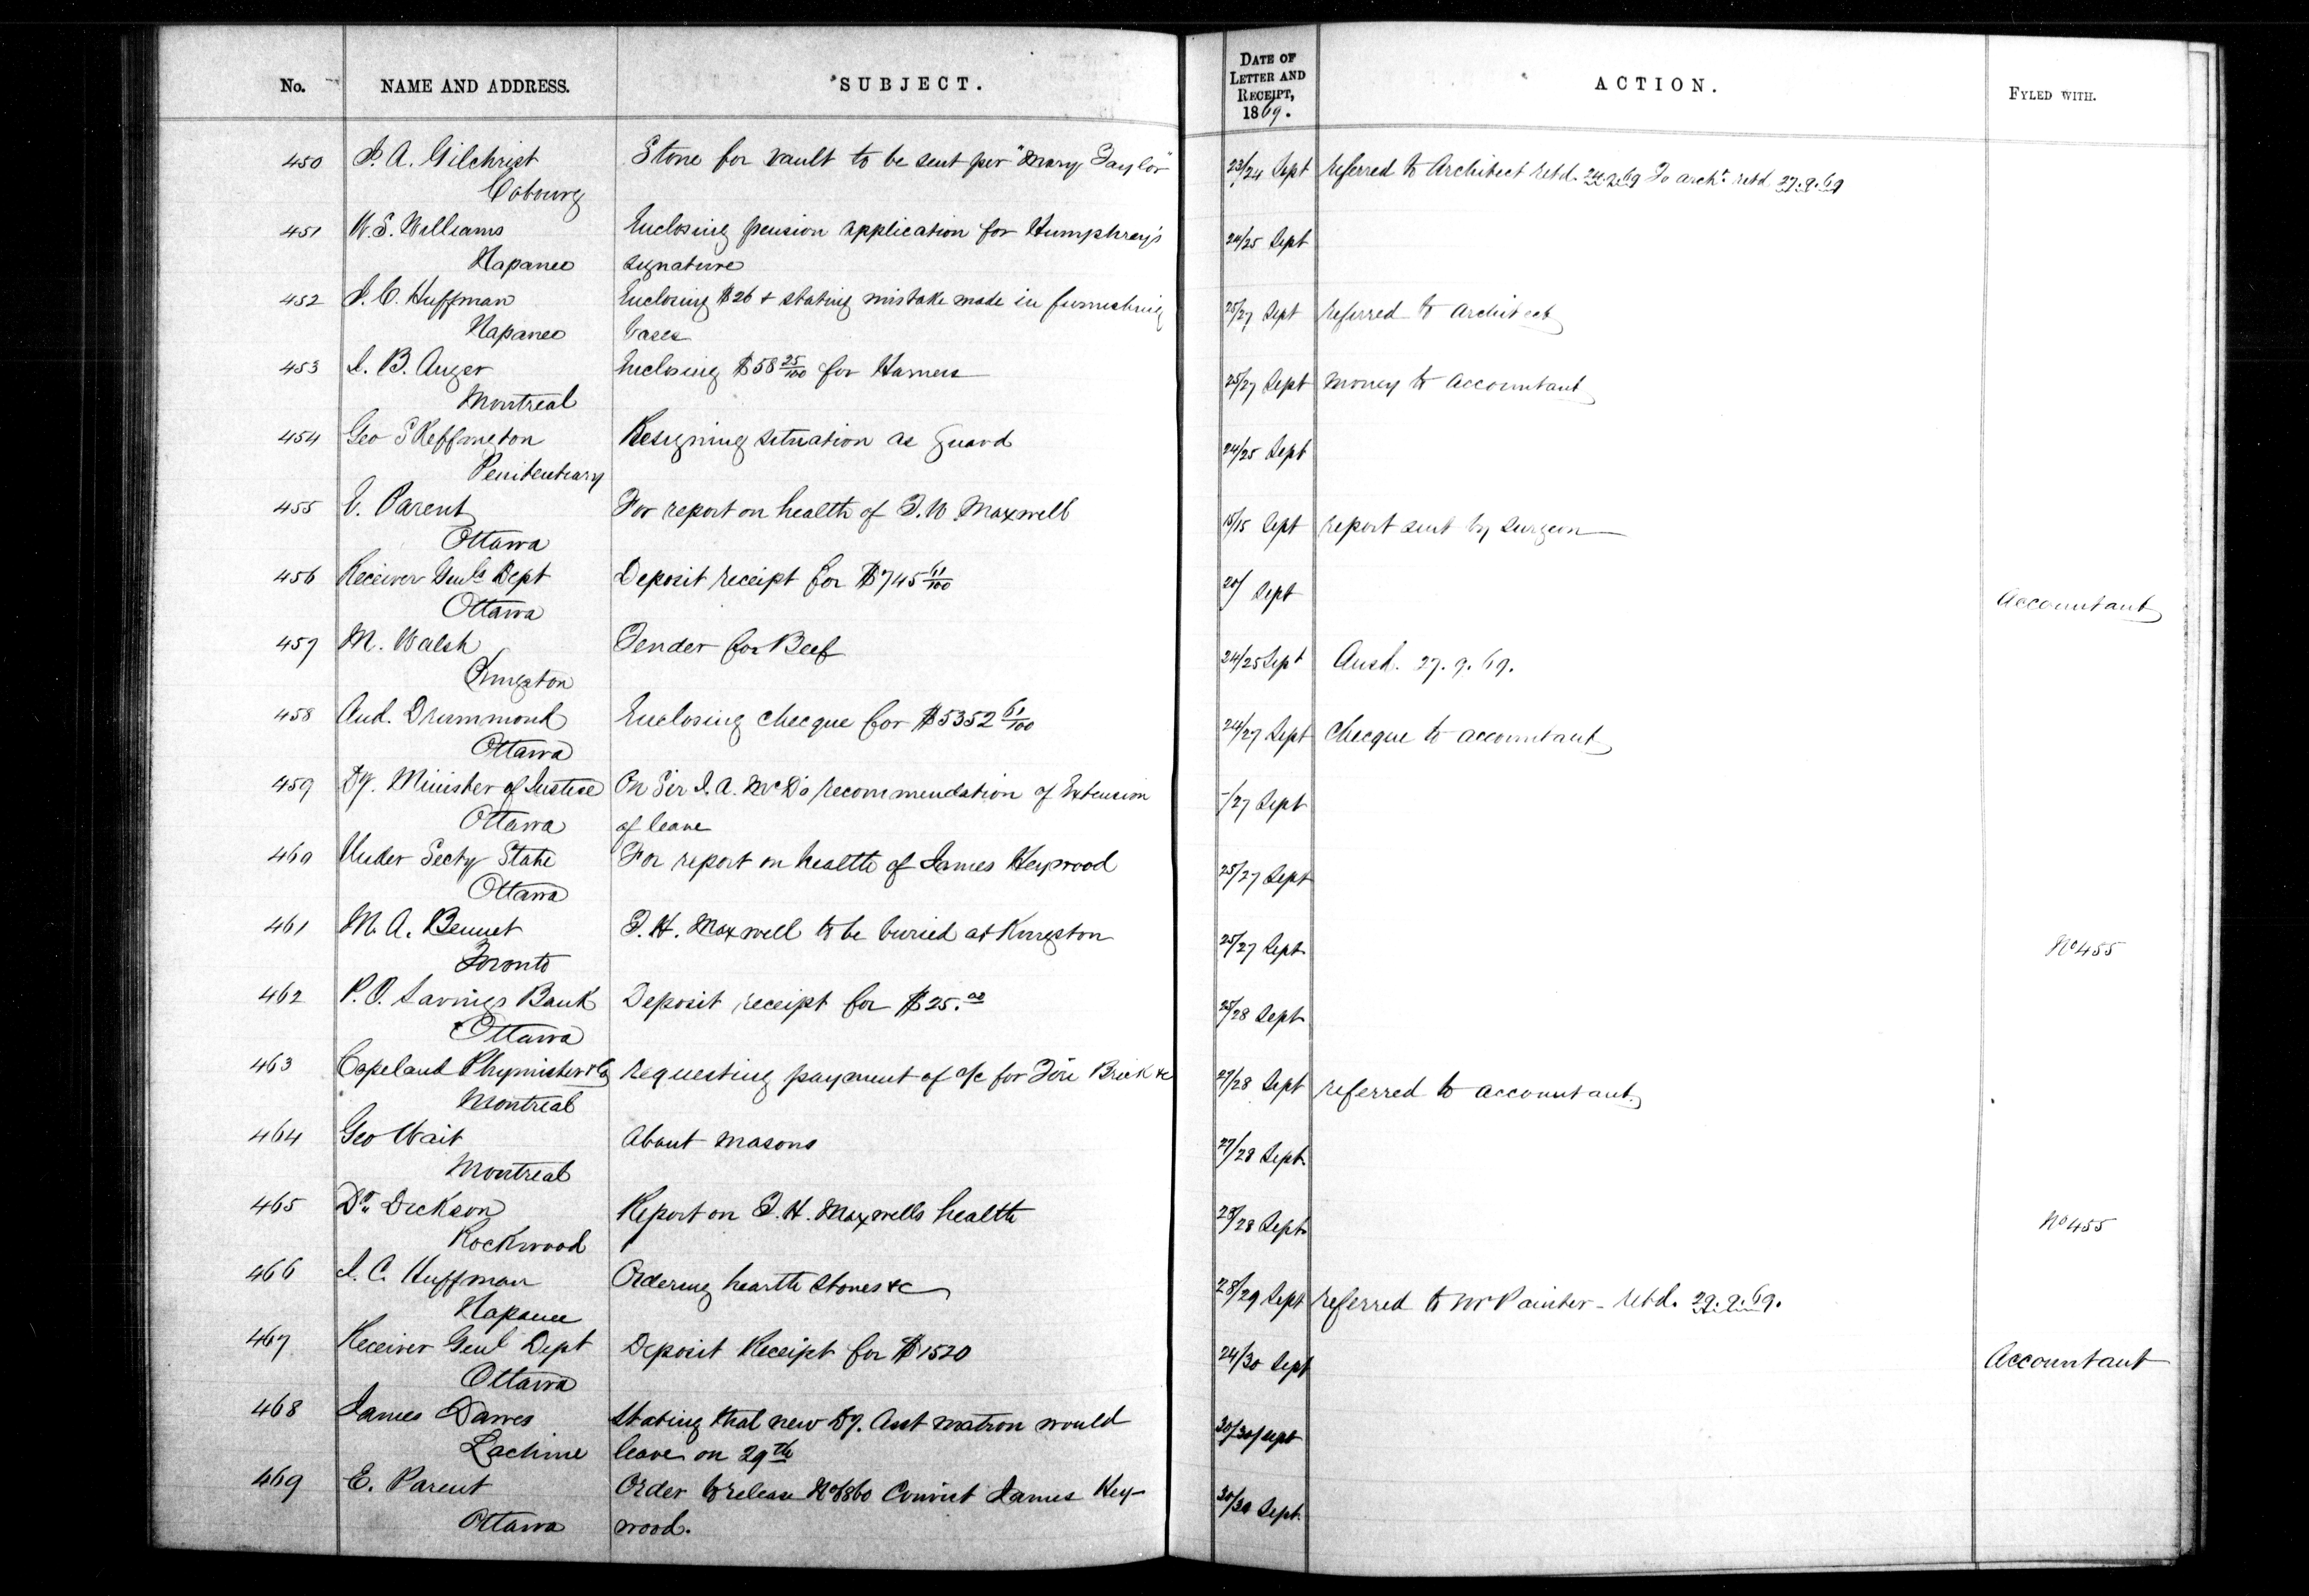 No. NAME AND ADDRESS. SUBJECT. DATE OF LETTER AND RECEIPT, 1869. ACTION. FYLED WITH.
450 J. A. Gilchrist Stone for vault to be sent per "Mary Taylor" 23/24 Sept referred to Architect retd. 24.9.69 To archt. retd 27.9.69
Cobourg
451 W. S. Williams Enclosing pension application for Humphrey's 24/25 Sept
Napanee signature
452 J. C. Huffman Enclosing $26 + stating mistake made in furnishing 25/27 Sept referred to Architect
Napanee bases
453 J. B. Auger Enclosing $58 25/100 for Hamers 25/27 Sept money to Accountant
Montreal
454 Geo Skeffington Resigning situation as guard 24/25 Sept
Penitentiary
455 E. Parent For report on health of T. W. Maxwell 15/15 Sept report sent by surgeon
Ottawa
456 Receiver Genls Dept Deposit receipt for $745 61/100 20/ Sept Accountant
Ottawa
457 M. Walsh Tender for Beef 24/25 Sept Ansd. 27.9.69.
Kingston
458 And. Drummond Enclosing checque for $5352 61/100 24/27 Sept checque to accountant
Ottawa
459 Dy. Minister of Justice On Sir J. A. McD's recommendation of Extension -/27 Sept
Ottawa of leave
460 Under Secty State For report on health of James Heywood 25/27 Sept
Ottawa
461 M. A. Bennet T. H. Maxwell to be buried at Kingston 25/27 Sept No 455
Toronto
462 P. O. Savings Bank Deposit receipt for $25.00 25/28 Sept
Ottawa
463 Copeland Phymister & Co requesting payment of a/c for Fire Brick &c 27/28 Sept referred to accountant.
Montreal
464 Geo Wait About masons 27/28 Sept.
Montreal
465 Dr. Dickson Report on T. H. Maxwells health 28/28 Sept. No 455
Rockwood
466 J. C. Huffman Ordering hearth stones &c 28/29 Sept referred to Mr Painter - retd. 29.9.69.
Napanee
467 Receiver Genl Dept Deposit Receipt for $1520 24/30 Sept Accountant
Ottawa
468 James Dawes Stating that new Dy. Asst matron would 30/30/Sept
Lachine leave on 29th
469 E. Parent Order to release Convict James Hey- 30/30 Sept.
Ottawa wood.